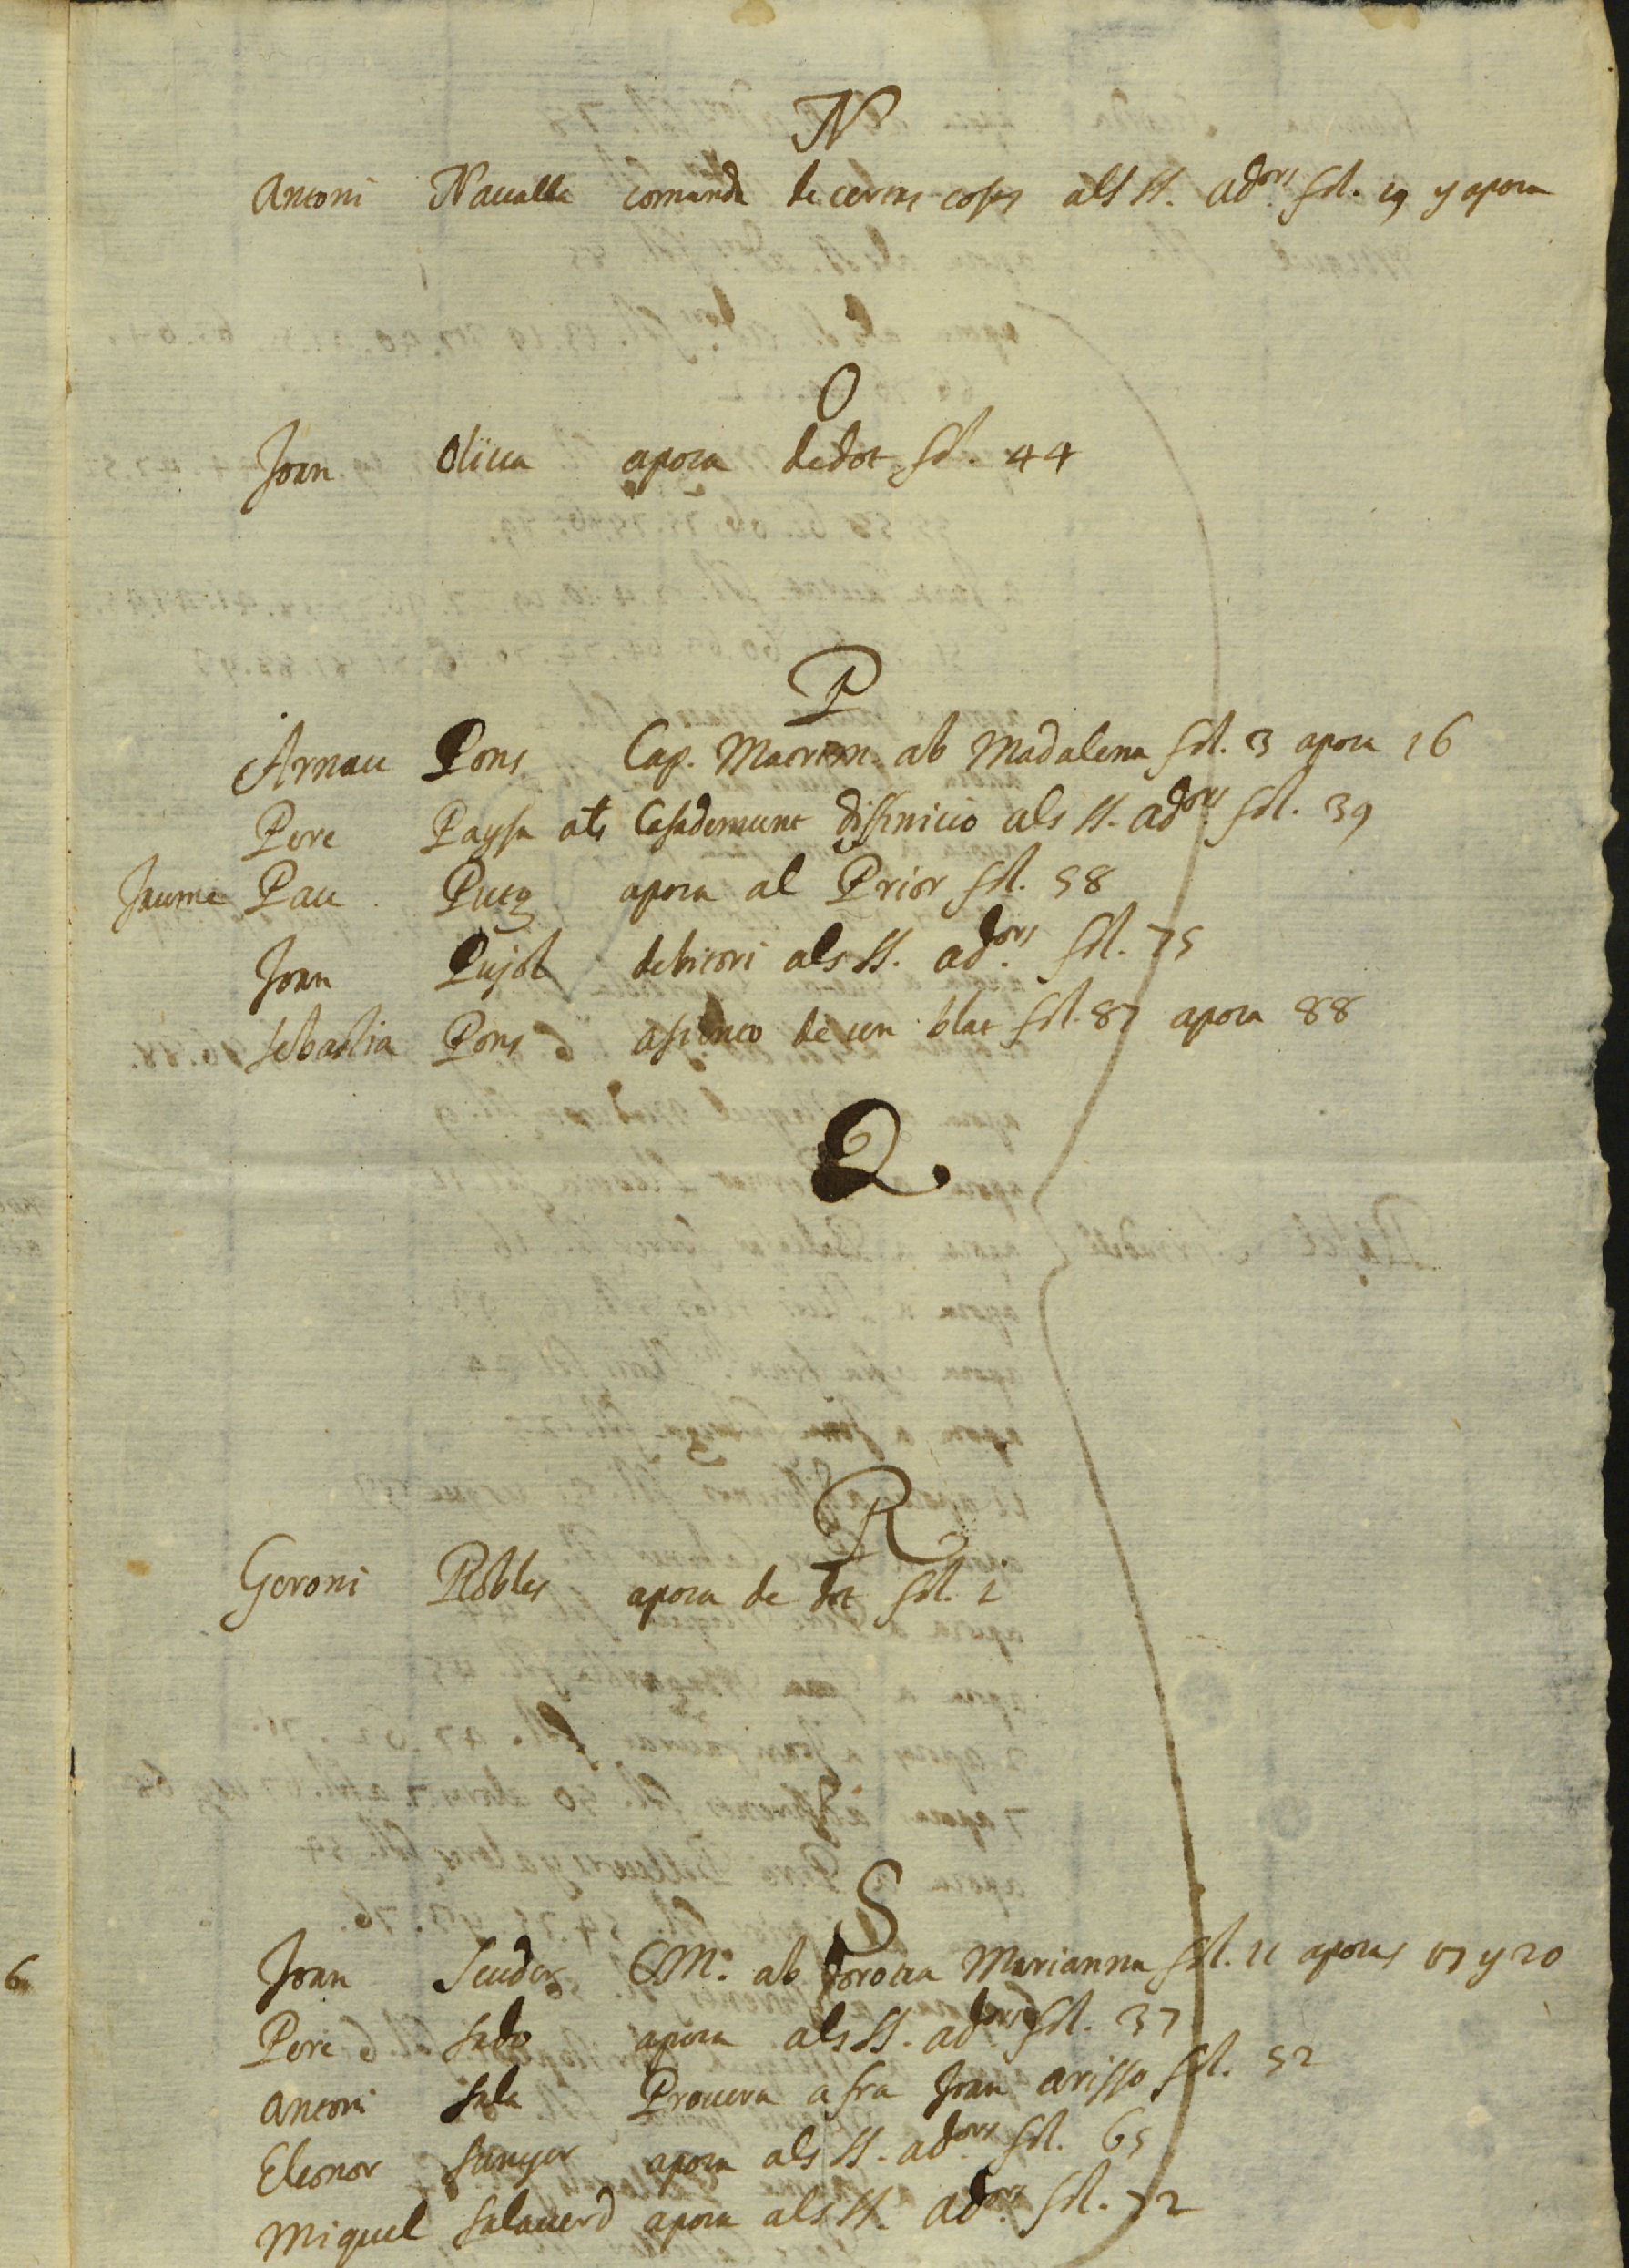 N
Antoni Naualla comanda de certes coses als SS. ad.ors fol. 19 y apoca
O
Joan Oliua apoca de dot fol. 44
P
Arnau Pons Cap. Matrim. ab Madalena fol. 3 apoca 16
Pere Payssa als Casademunt diffinicio als SS. ad.ors fol. 39
Jaume Pau Puig apoca al Prior fol. 58
Joan Pujol debitori als SS. ad.ors fol. 75
Sebastia Pons de un blat fol. 87 apoca 88
Q
R
Geroni Robles apoca de dot fol. 1
S
Joan Scuder CM. ab Dorotea Marianna fol. 11 apocas 17 y 20
Pere Sado apoca als SS. ad.ors fol. 37
Antoni Sala Procura a fra Joan Arisso fol. 52
Eleonor Sunyer apoca als SS. ad.ors fol. 65
6
Miquel Salauerd apoca als SS. ad.ors fol. 72